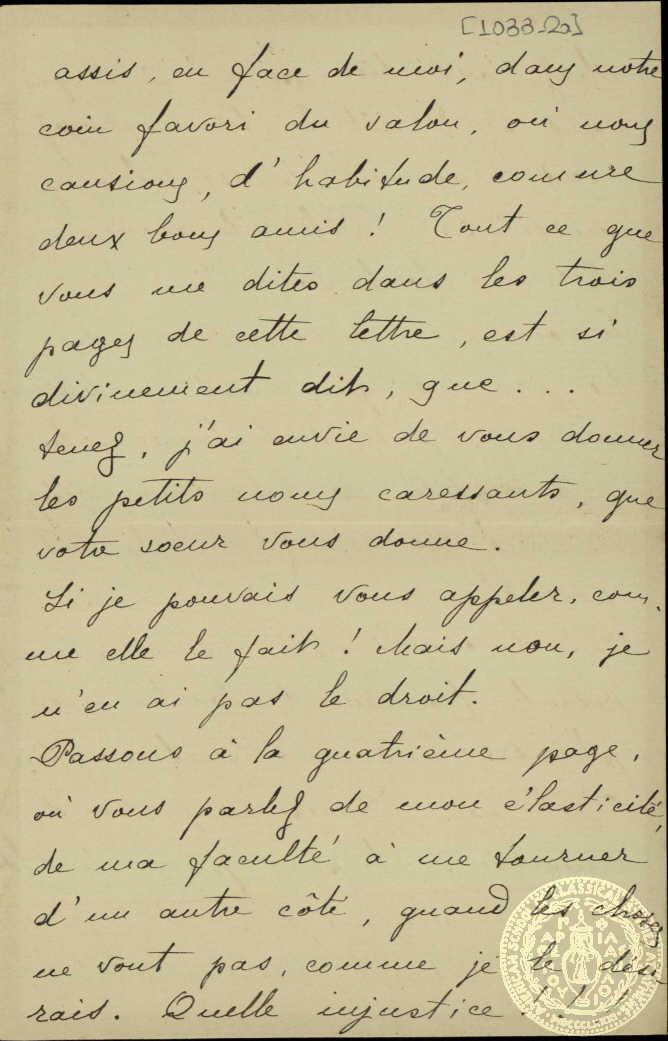 [1033-2a]
assis, en face de moi, dans notre
coin favori du salon, où nous
causions, d'habitude, comme
deux bons amis! Tout ce que
vous me dites dans les trois
pages de cette lettre, est si
divinement dit, que...
tenez, j'ai envie de vous donner
les petits noms caressants, que
votre soeur vous donne.
Si je pouvais vous appeler, com-
me elle le fait! Mais non, je
n'en ai pas le droit.
Passons à la quatrième page,
où vous parlez de mon élasticité,
de ma faculté à me tourner
d'un autre côté, quand les choses
ne vont pas, comme je le dési
rais. Quelle injustice!!!